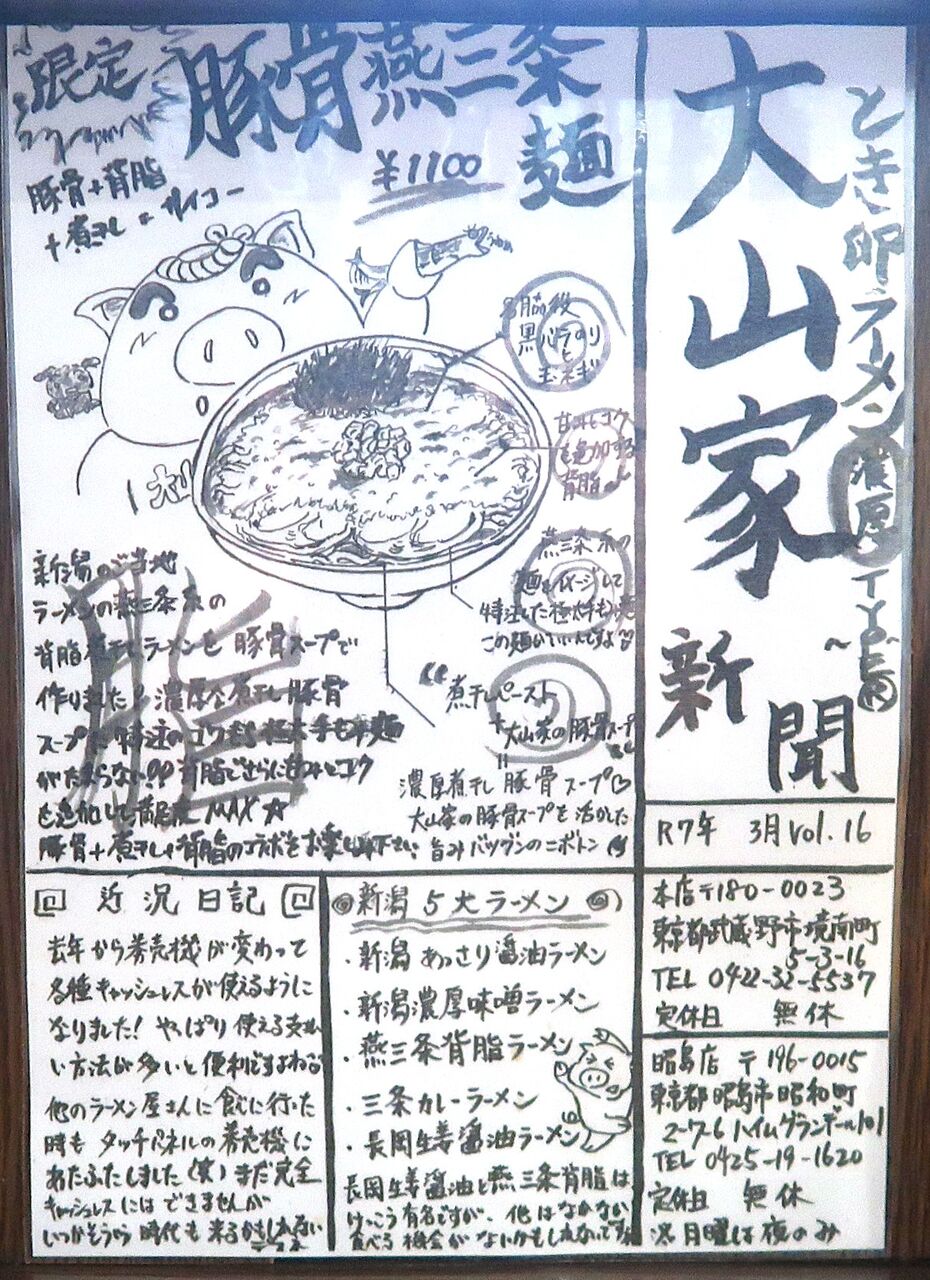 限定
豚骨燕三条
麺
¥1100
豚骨+背脂
+煮干し=サイコー
背脂
黒バラのり
と
玉ネギ
甘みとコク
を追加する
背脂
燕三条系の
麺をイメージして
特注した極太手もみ麺
この麺がいいんですよ
新潟のご当地
ラーメンの燕三条系の
背脂煮干しラーメンを豚骨スープで
作りました!濃厚な煮干し豚骨
スープに特注のコシ極太手もみ麺
がたまらない!?背脂でさらに甘みとコク
を追加して満足度MAX☆
豚骨+煮干し+背脂のコラボをお楽しみ下さい
脂
煮干しペースト
+
大山家の豚骨スープ
=
濃厚煮干し豚骨スープ♡
大山家の豚骨スープを活かした
旨みバツグンのニボトン
とき卵ラーメン 濃厚
大山家
新聞
R7年 3月 vol.16
本店〒180-0023
東京都武蔵野市境南町
5-3-16
TEL 0422-32-5537
定休日 無休
昭島店 〒196-0015
東京都昭島市昭和町
2-7-6 ハイムグランデール101
TEL 0425-19-1620
定休日 無休
※月曜は夜のみ
近況日記
去年から券売機が変わって
各種キャッシュレスが使えるように
なりました!やっぱり使える支払
い方法が多いと便利ですよね
他のラーメン屋さんに食べに行った
時もタッチパネルの券売機に
あたふたしました(笑)まだ完全
キャッシュレスにはできませんが
いつかそういう時代も来るかもしれない
ですネ
新潟5大ラーメン
・新潟あっさり醤油ラーメン
・新潟濃厚味噌ラーメン
・燕三条背脂ラーメン
・三条カレーラーメン
・長岡生姜醤油ラーメン
長岡生姜醤油と燕三条背脂は
けっこう有名ですが、他はなかなか
食べる機会がないかもしれないですね